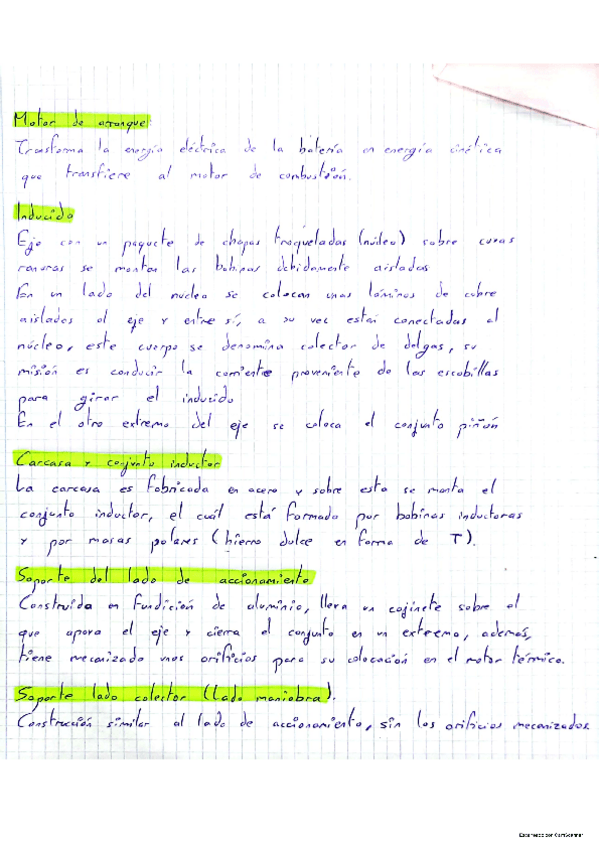 Motor de arranque:
Transforma la energía eléctrica de la batería en energía cinética
que transfiere al motor de combustión.
Inducido
Eje con un paquete de chapas troqueladas (núcleo) sobre cuyas
ranuras se montan las bobinas debidamente aisladas
En un lado del nucleo se colocan unas láminas de cobre
aislados al eje y entre sí, a su vez están conectadas al
núcleo, este cuerpo se denomina colector de delgas, su
misión es conducir la corriente proveniente de las escobillas
para girar el inducido
En el otro extremo del eje se coloca el conjunto piñón
Carcasa y conjunto inductor
La carcasa es fabricada en acero y sobre esta se monta el
conjunto inductor, el cuál está formado por bobinas inductoras
y por masas polares (hierro dulce en forma de T).
Soporte del lado de accionamiento
Construida en fundición de aluminio, lleva un cojinete sobre el
que apoya el eje y cierra el conjunto en un extremo, además,
tiene mecanizado unos orificios para su colocación en el motor térmico.
Soporte lado colector (lado maniobra).
Construcción similar al lado de accionamiento, sin los orificios mecanizados.
Escaneado con CamScanner